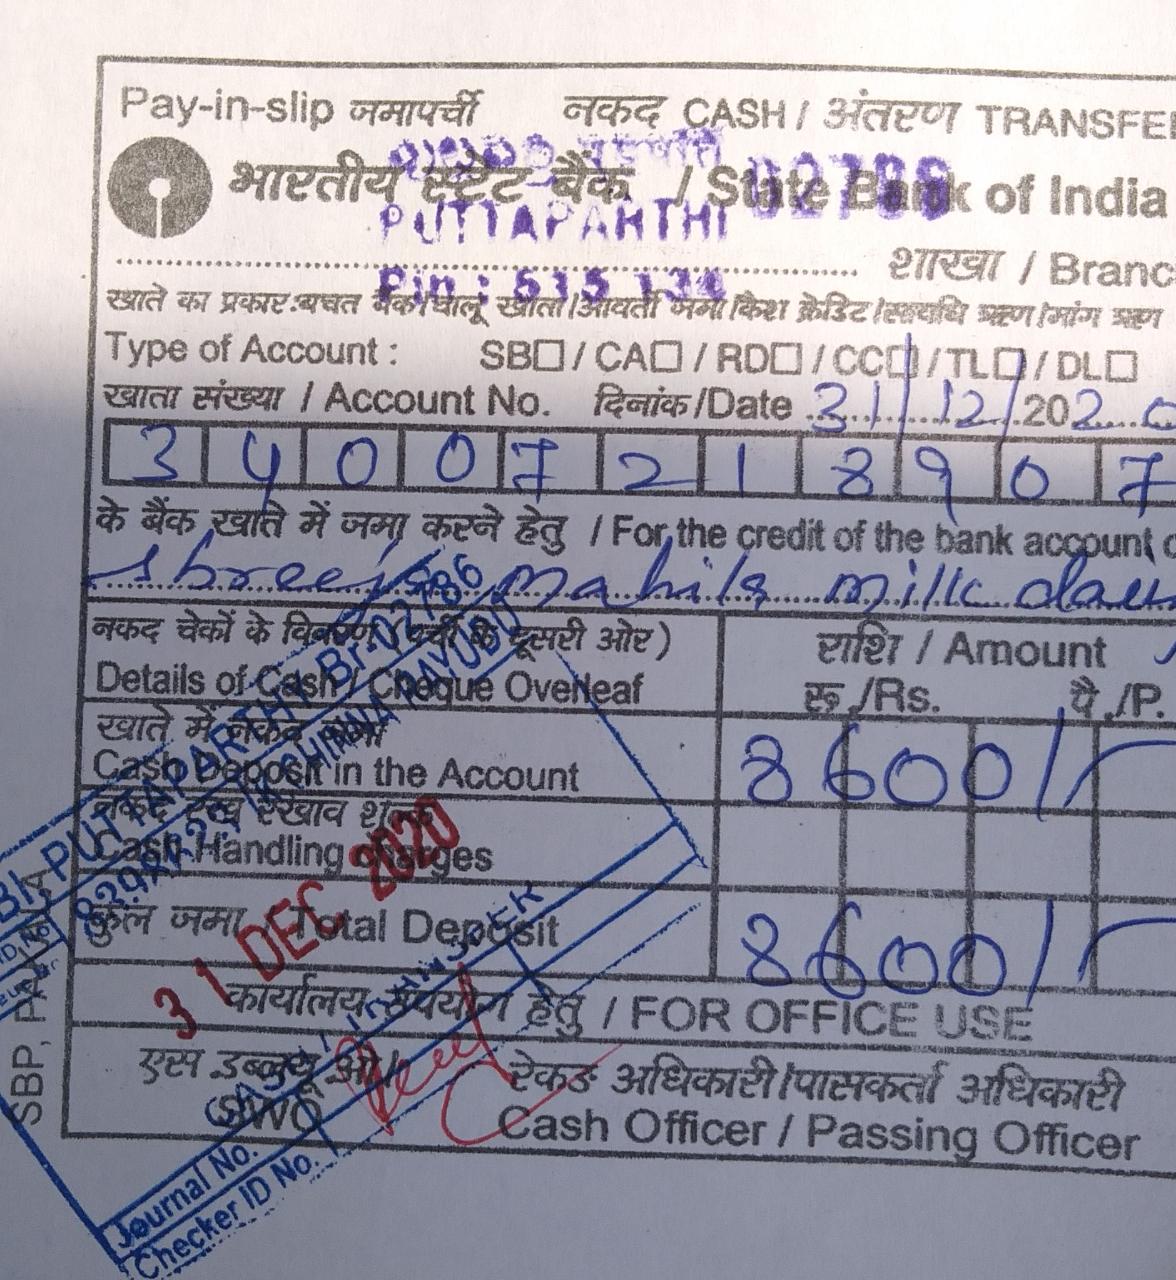 Pay-in-slip जमापर्ची नकद CASH / अंतरण TRANSFE
भारतीय स्टेट बैंक / State Bank of India
02786
PUTTAPARTHI
Pin : 515 134
शाखा / Branc
खाते का प्रकार:बचत बैंक/चालू खाता/आवर्ती जमा/कैश क्रेडिट/सावधि ऋण/मांग ऋण
Type of Account : SB□ / CA□ / RD□ / CC□ / TL□ / DL□
खाता संख्या / Account No. दिनांक/Date 31/12/2020
3 4 0 0 7 2 1 8 9 0 7
के बैंक खाते में जमा करने हेतु / For the credit of the bank account
mahila milk
नकद चेकों के विवरण (पर्ची के दूसरी ओर) राशि / Amount
Details of Cash / Cheque Overleaf रू /Rs. पै /P.
खाते में नकद जमा
Cash Deposit in the Account 8600/
नकद रख रखाव शुल्क
Cash Handling charges
कुल जमा Total Deposit 8600/
31 DEC 2020
कार्यालय उपयोग हेतु / FOR OFFICE USE
एस डब्ल्यू ओ/ रोकड अधिकारी/पासकर्ता अधिकारी
SWO Cash Officer / Passing Officer
SBI, PUTTAPARTHI Br-02786
CASH / TRANSFER
Journal No.
Checker ID No.